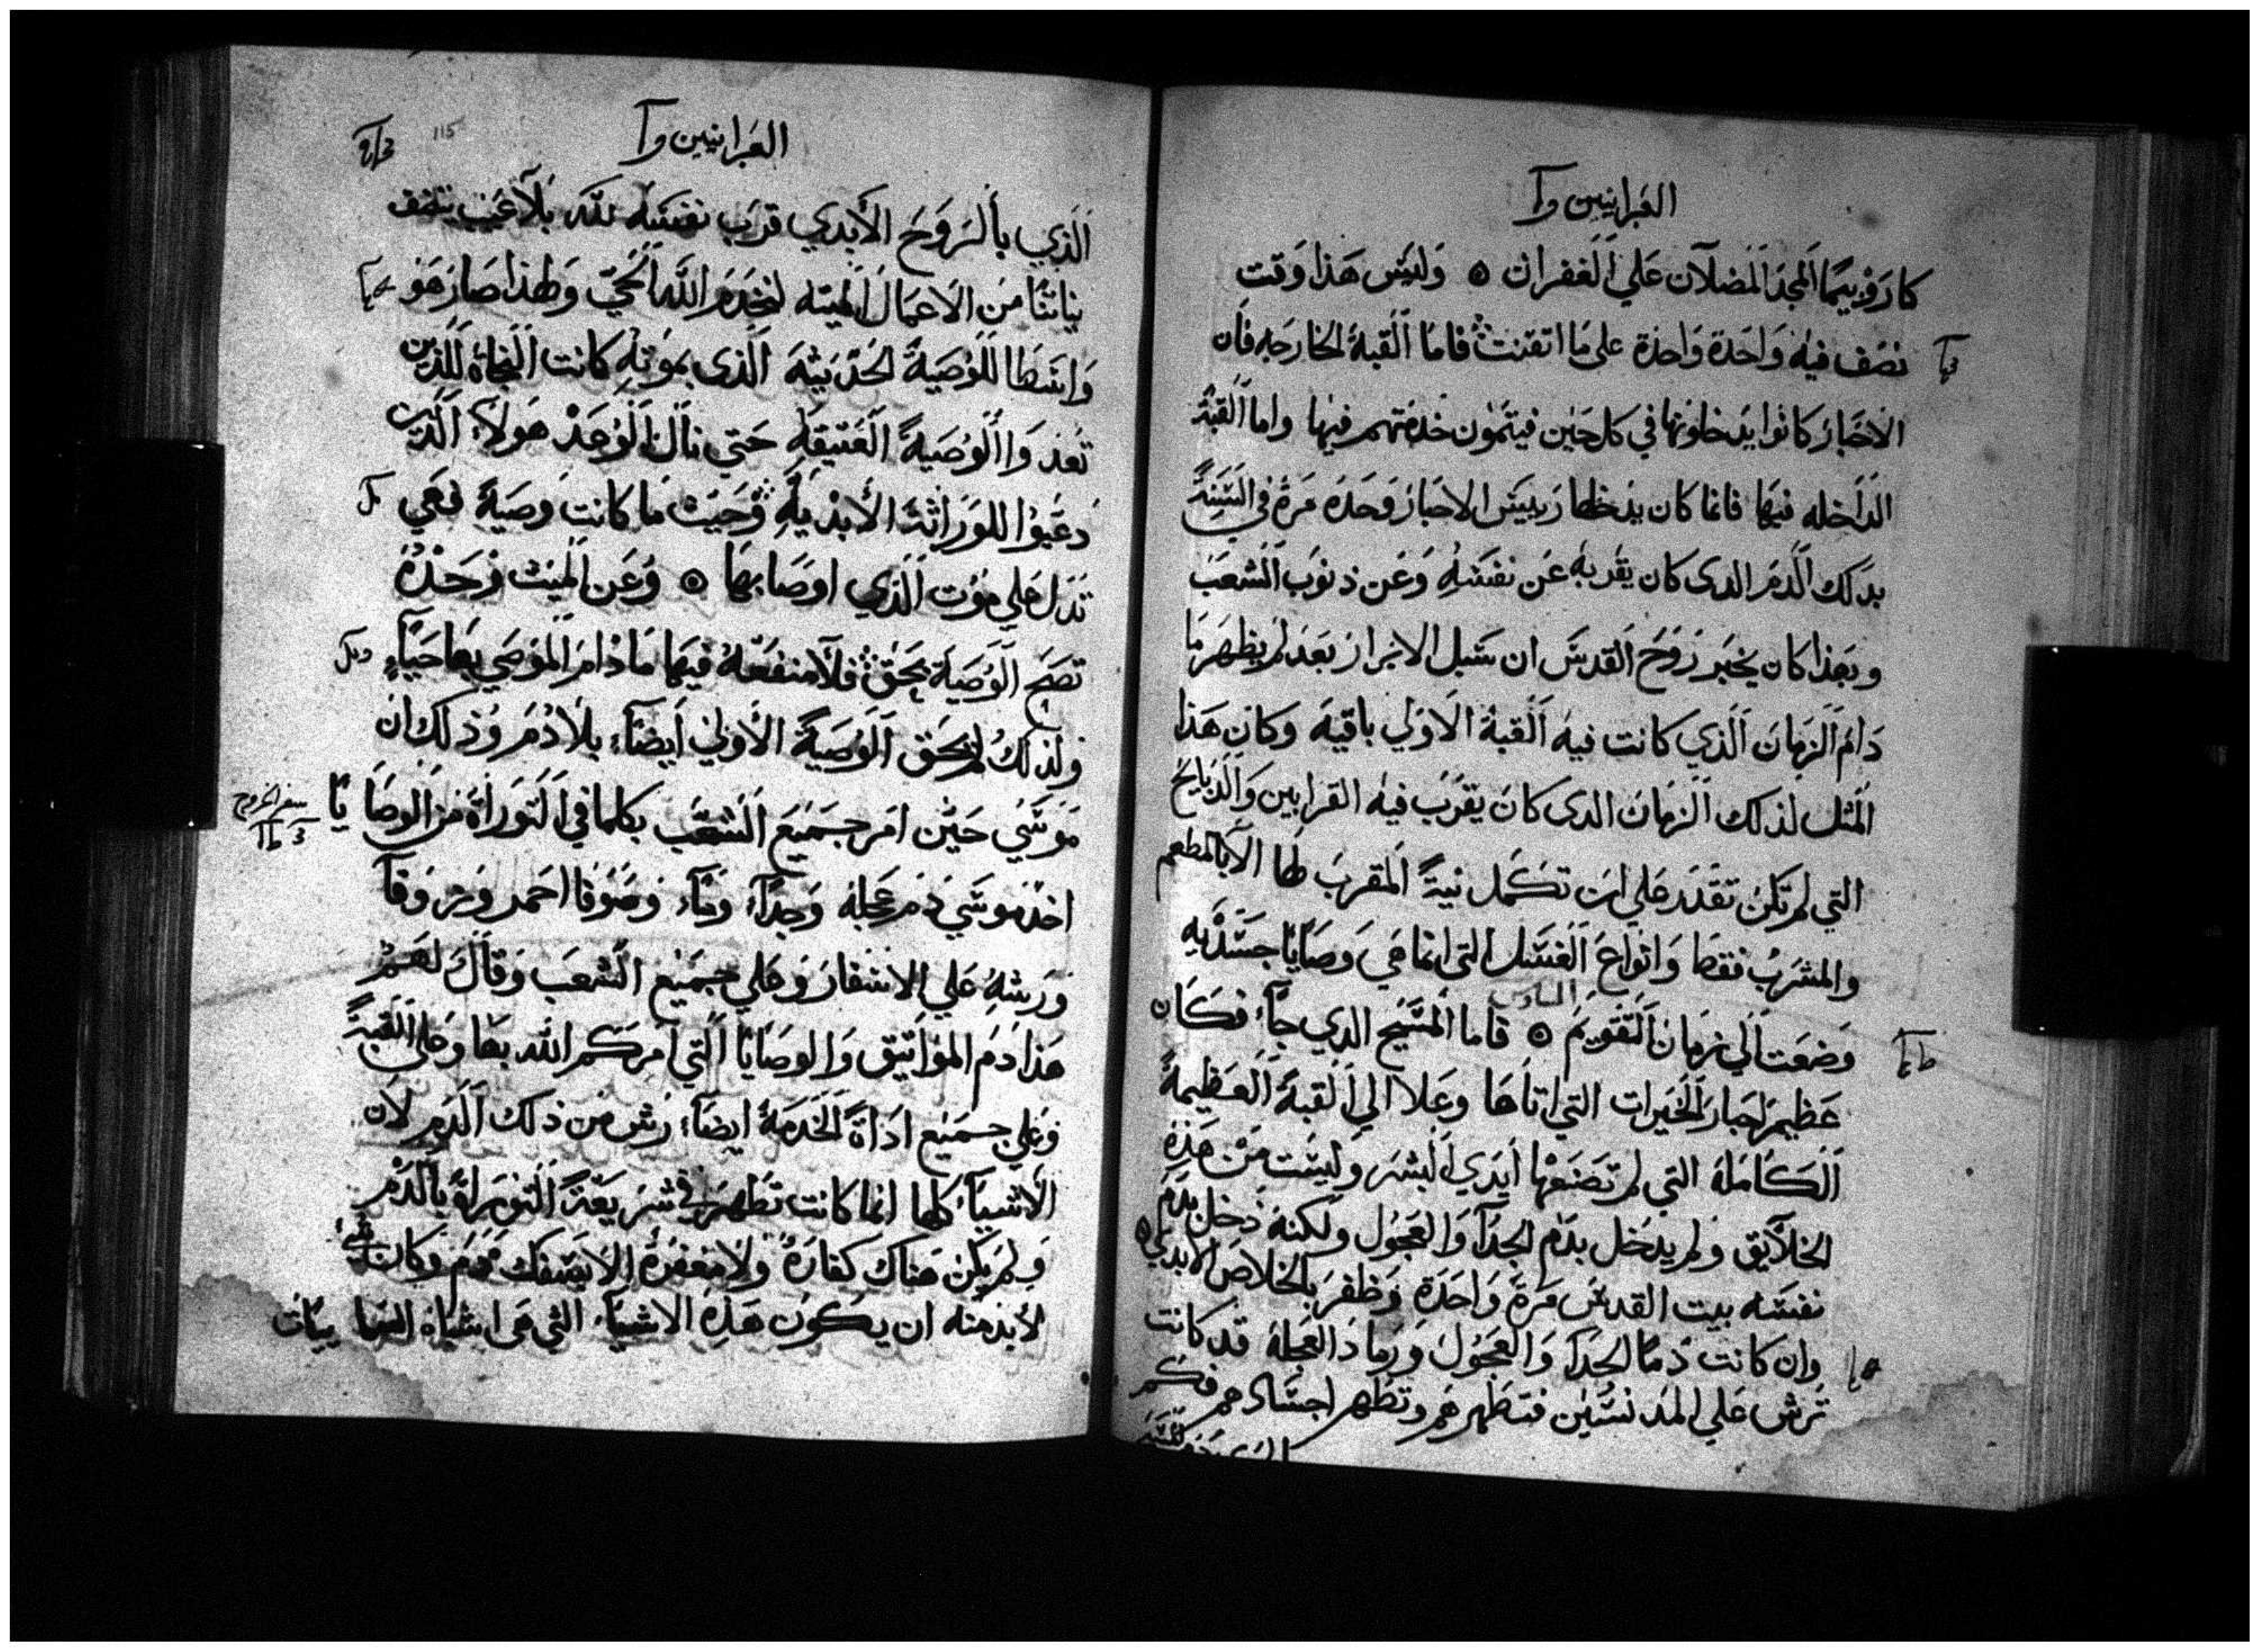 العبرانيين وآ
كاروبيما المجد المضلان علي الغفران ۞ وليس هذا وقت
نصف فيه واحدة واحدة على ما اتقنت فاما القبة الخارجه فان
الاحبار كانوا يدخلونها في كل حين فيتمون خدمتهم فيها واما القبة
الداخله فيها فانما كان يدخلها رييس الاحبار وحده مرة في السنة
بدلك الدم الدى كان يقربه عن نفسه وعن ذنوب الشعب
وبهذا كان يخبر روح القدس ان سبل الابرار بعد لم يظهر ما
دام الزمان الذي كانت فيه القبة الاولي باقيه وكان هذا
المثل لذلك الزمان الدى كان يقرب فيه القرابين والدبايح
التي لم تكن تقدر علي ان تكمل نية المقرب لها الا بالمطعم
والمشرب فقط وانواع الغسل التي انما هي وصايا جسديه
السادس
وضعت الي زمان التقويم ۞ فاما المسيح الدي جاء فكان
عظيم احبار الخيرات التي اتاها وعلا الي القبة العظيمة
الكاملة التي لم تصنعها ايدي البشر وليست من هذه
الخلايق ولم يدخل بدم الجدآ والعجول ولكنه دخل بدم
نفسه بيت القدس مرة واحدة وظفر بالخلاص الابدي ۞
وان كانت دما الجدآ والعجول ورماد العجلة قد كانت
ترش علي المدنسين فتطهرهم وتطهر اجسادهم فكم
العبرانيين وآ
115
الذي بالروح الابدي قرب نفسه لله بلا عيب تنضف
نياتنا من الاعمال الميته لنخدم الله الحي ولهذا صار هو
واسطا للوصية الحديثة الذى بموته كانت النجاة للذين
تعدوا الوصية العتيقه حتي نال الوعد هولاء الذين
دعيوا للوراثة الأبدية وحيث ما كانت وصية فهي
تدل علي موت الذي اوصا بها ۞ وعن الميت وحده
تصح الوصية بحق فلا منفعة فيها ما دام الموصي بها حيا
ولذلك لم تحق الوصية الاولي ايضا بلا دم وذلك ان
موسي حين امر جميع الشعب بكلما في التوراة من الوصايا
سفر الخروج
اخذ موسي دم عجله وجدآ وماء وصوفا احمر وزوفآ
ورشه علي الاسفار وعلي جميع الشعب وقال لهم
هذا دم المواثيق والوصايا التي امركم الله بها وعلي القبة
وعلي جميع اداة الخدمة ايضا رش من ذلك الدم لان
الاشياء كلها انما كانت تطهر في شريعة التوراة بالدم
ولم يكن هناك كفارة ولا مغفرة الا بسفك دم وكان
لابد منه ان يكون هذه الاشياء التي هى اشباه السماييات